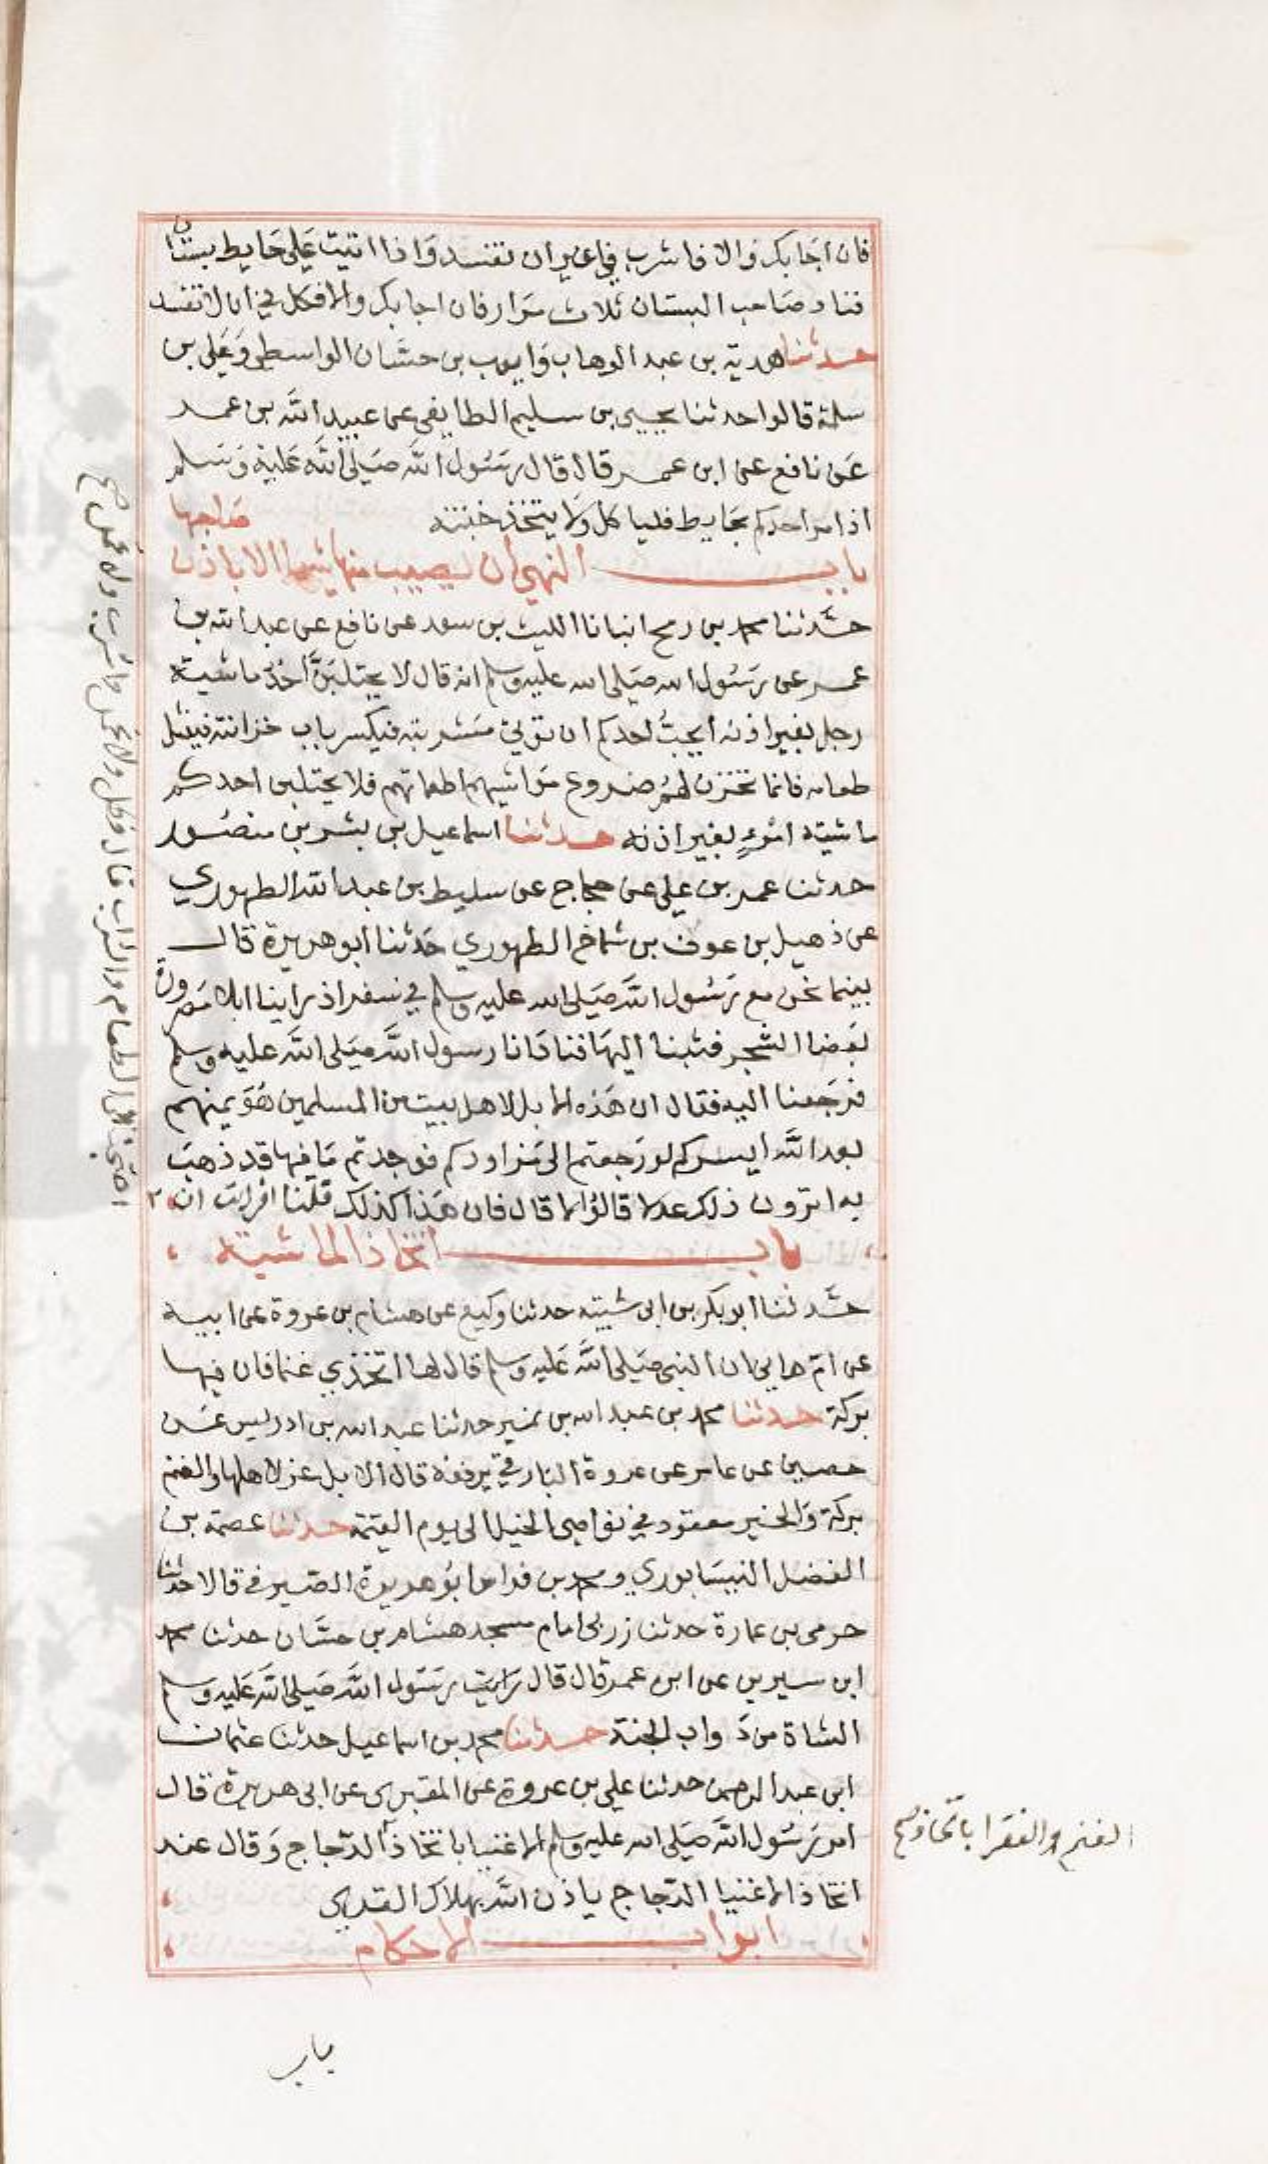 فان اجابك والا فاشرب في غير ان تفسد واذا اتيت على حايط بستان
فناد صاحب البستان ثلاث مرار فان اجابك والا فكل في ان لا تفسد
حدثنا هدية بن عبد الوهاب وايوب بن حسان الواسطي وعلي بن
سلمة قالوا حدثنا يحيى بن سليم الطايفي عن عبيد الله بن عمر
عن نافع عن ابن عمر قال قال رسول الله صلى الله عليه وسلم
اذا مر احدكم بحايط فلياكل ولا يتخذ خبنة صاحبها
باب النهي ان يصيب منها شيا الا باذن
حدثنا محمد بن رمح انبانا الليث بن سعد عن نافع عن عبد الله بن
عمر عن رسول الله صلى الله عليه وسلم انه قال لا يحتلبن احد ماشية
رجل بغير اذنه ايحب احدكم ان توتى مشربته فيكسر باب خزانته فينثل
طعامه فانما تخزن لهم ضروع مواشيهم اطعماتهم فلا يحتلبن احدكم
ماشية امرء بغير اذنه حدثنا اسماعيل بن بشر بن منصور
حدثنا عمر بن علي عن حجاج عن سليط بن عبد الله الطهوري
عن ذهيل بن عوف بن شماخ الطهوري حدثنا ابو هريرة قال
بينما نحن مع رسول الله صلى الله عليه وسلم في سفر اذ راينا ابلا مصرورة
بعضا الشجر فثبنا اليها فنادانا رسول الله صلى الله عليه وسلم
فرجعنا اليه فقال ان هذه الابل لاهل بيت من المسلمين هو يمنهم
بعد الله ايسركم لو رجعتم الى مزاودكم فوجدتم ما فيها قد ذهب
به اترون ذلك عدلا قالوا لا قال فان هذا كذلك قلنا افرايت ان
احتجنا الى الطعام والشراب فقال كل ولا تحمل واشرب ولا تحمل صح
باب اتخاذ الماشية
حدثنا ابو بكر بن ابي شيبة حدثنا وكيع عن هشام بن عروة عن ابيه
عن ام هاني ان النبي صلى الله عليه وسلم قال لها اتخذي غنما فان فيها
بركة حدثنا محمد بن عبد الله بن نمير حدثنا عبد الله بن ادريس عن
حصين عن عامر عن عروة البارقي يرفعه قال الابل عز لاهلها والغنم
بركة والخير معقود في نواصي الخيل الى يوم القيمة حدثنا عصمة بن
الفضل النيسابوري ومحمد بن فراس ابو هريرة الصيرفي قالا حدثنا
حرمي بن عمارة حدثنا زربي امام مسجد هشام بن حسان حدثنا محمد
ابن سيرين عن ابن عمر قال قال رايت رسول الله صلى الله عليه وسلم
الشاة من دواب الجنة حدثنا محمد بن اسماعيل حدثنا عثمان
ابن عبد الرحمن حدثنا علي بن عروة عن المقبري عن ابي هريرة قال
امر رسول الله صلى الله عليه وسلم الاغنيا باتخاذ الدجاج وقال عند
الغنم وامر الفقرا باتخاذ صح
اتخاذ الاغنيا الدجاج ياذن الله بهلاك القرى
ابواب الاحكام
باب